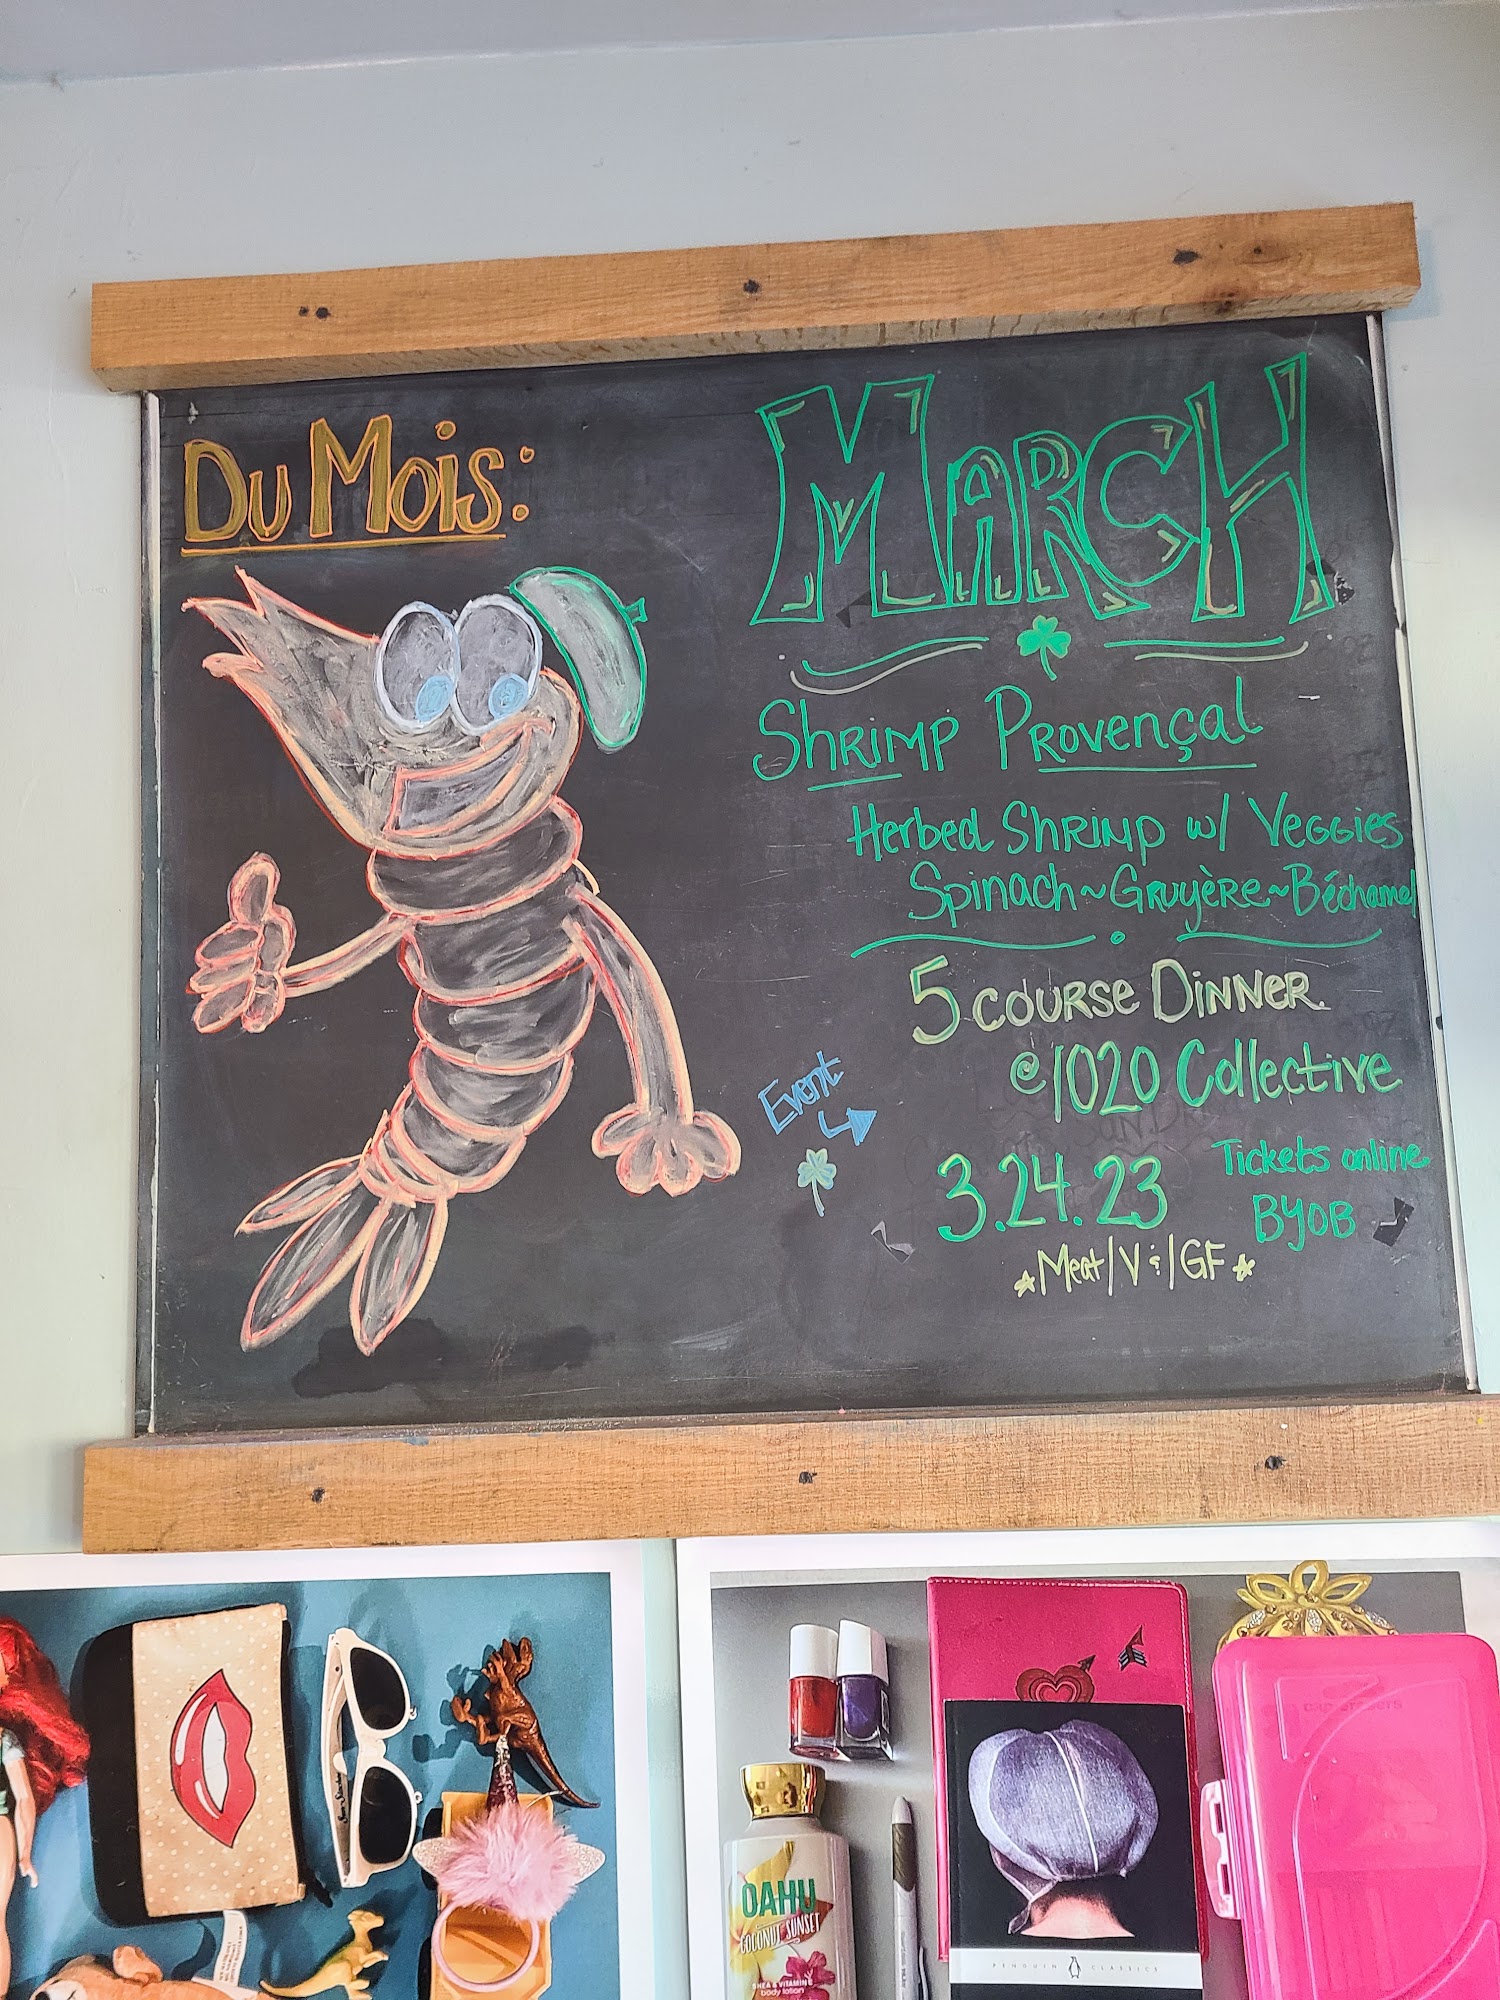 Du Mois:
MARCH
Shrimp Provençal
Herbed Shrimp w/ Veggies
Spinach~Gruyère~Béchamel
5 course Dinner
@1020 Collective
Event
3.24.23
Tickets online
BYOB
Meat/V &/GF
OAHU
COCONUT SUNSET
SHEA & VITAMIN E
body lotion
PENGUIN CLASSICS